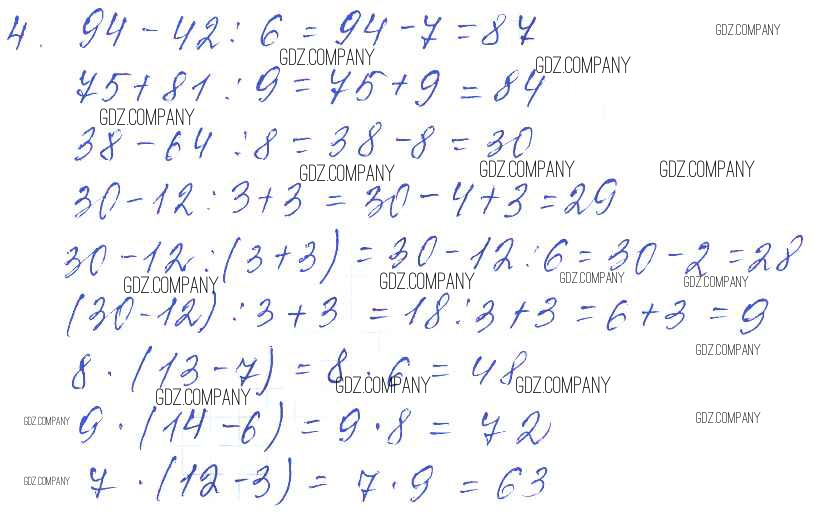 4. 94 - 42 : 6 = 94 - 7 = 87
GDZ.COMPANY
GDZ.COMPANY GDZ.COMPANY
75 + 81 : 9 = 75 + 9 = 84
GDZ.COMPANY
38 - 64 : 8 = 38 - 8 = 30
GDZ.COMPANY GDZ.COMPANY GDZ.COMPANY
30 - 12 : 3 + 3 = 30 - 4 + 3 = 29
30 - 12 : (3 + 3) = 30 - 12 : 6 = 30 - 2 = 28
GDZ.COMPANY GDZ.COMPANY GDZ.COMPANY GDZ.COMPANY
(30 - 12) : 3 + 3 = 18 : 3 + 3 = 6 + 3 = 9
GDZ.COMPANY
8 · (13 - 7) = 8 · 6 = 48
GDZ.COMPANY GDZ.COMPANY GDZ.COMPANY
GDZ.COMPANY 9 · (14 - 6) = 9 · 8 = 72 GDZ.COMPANY
GDZ.COMPANY 7 · (12 - 3) = 7 · 9 = 63